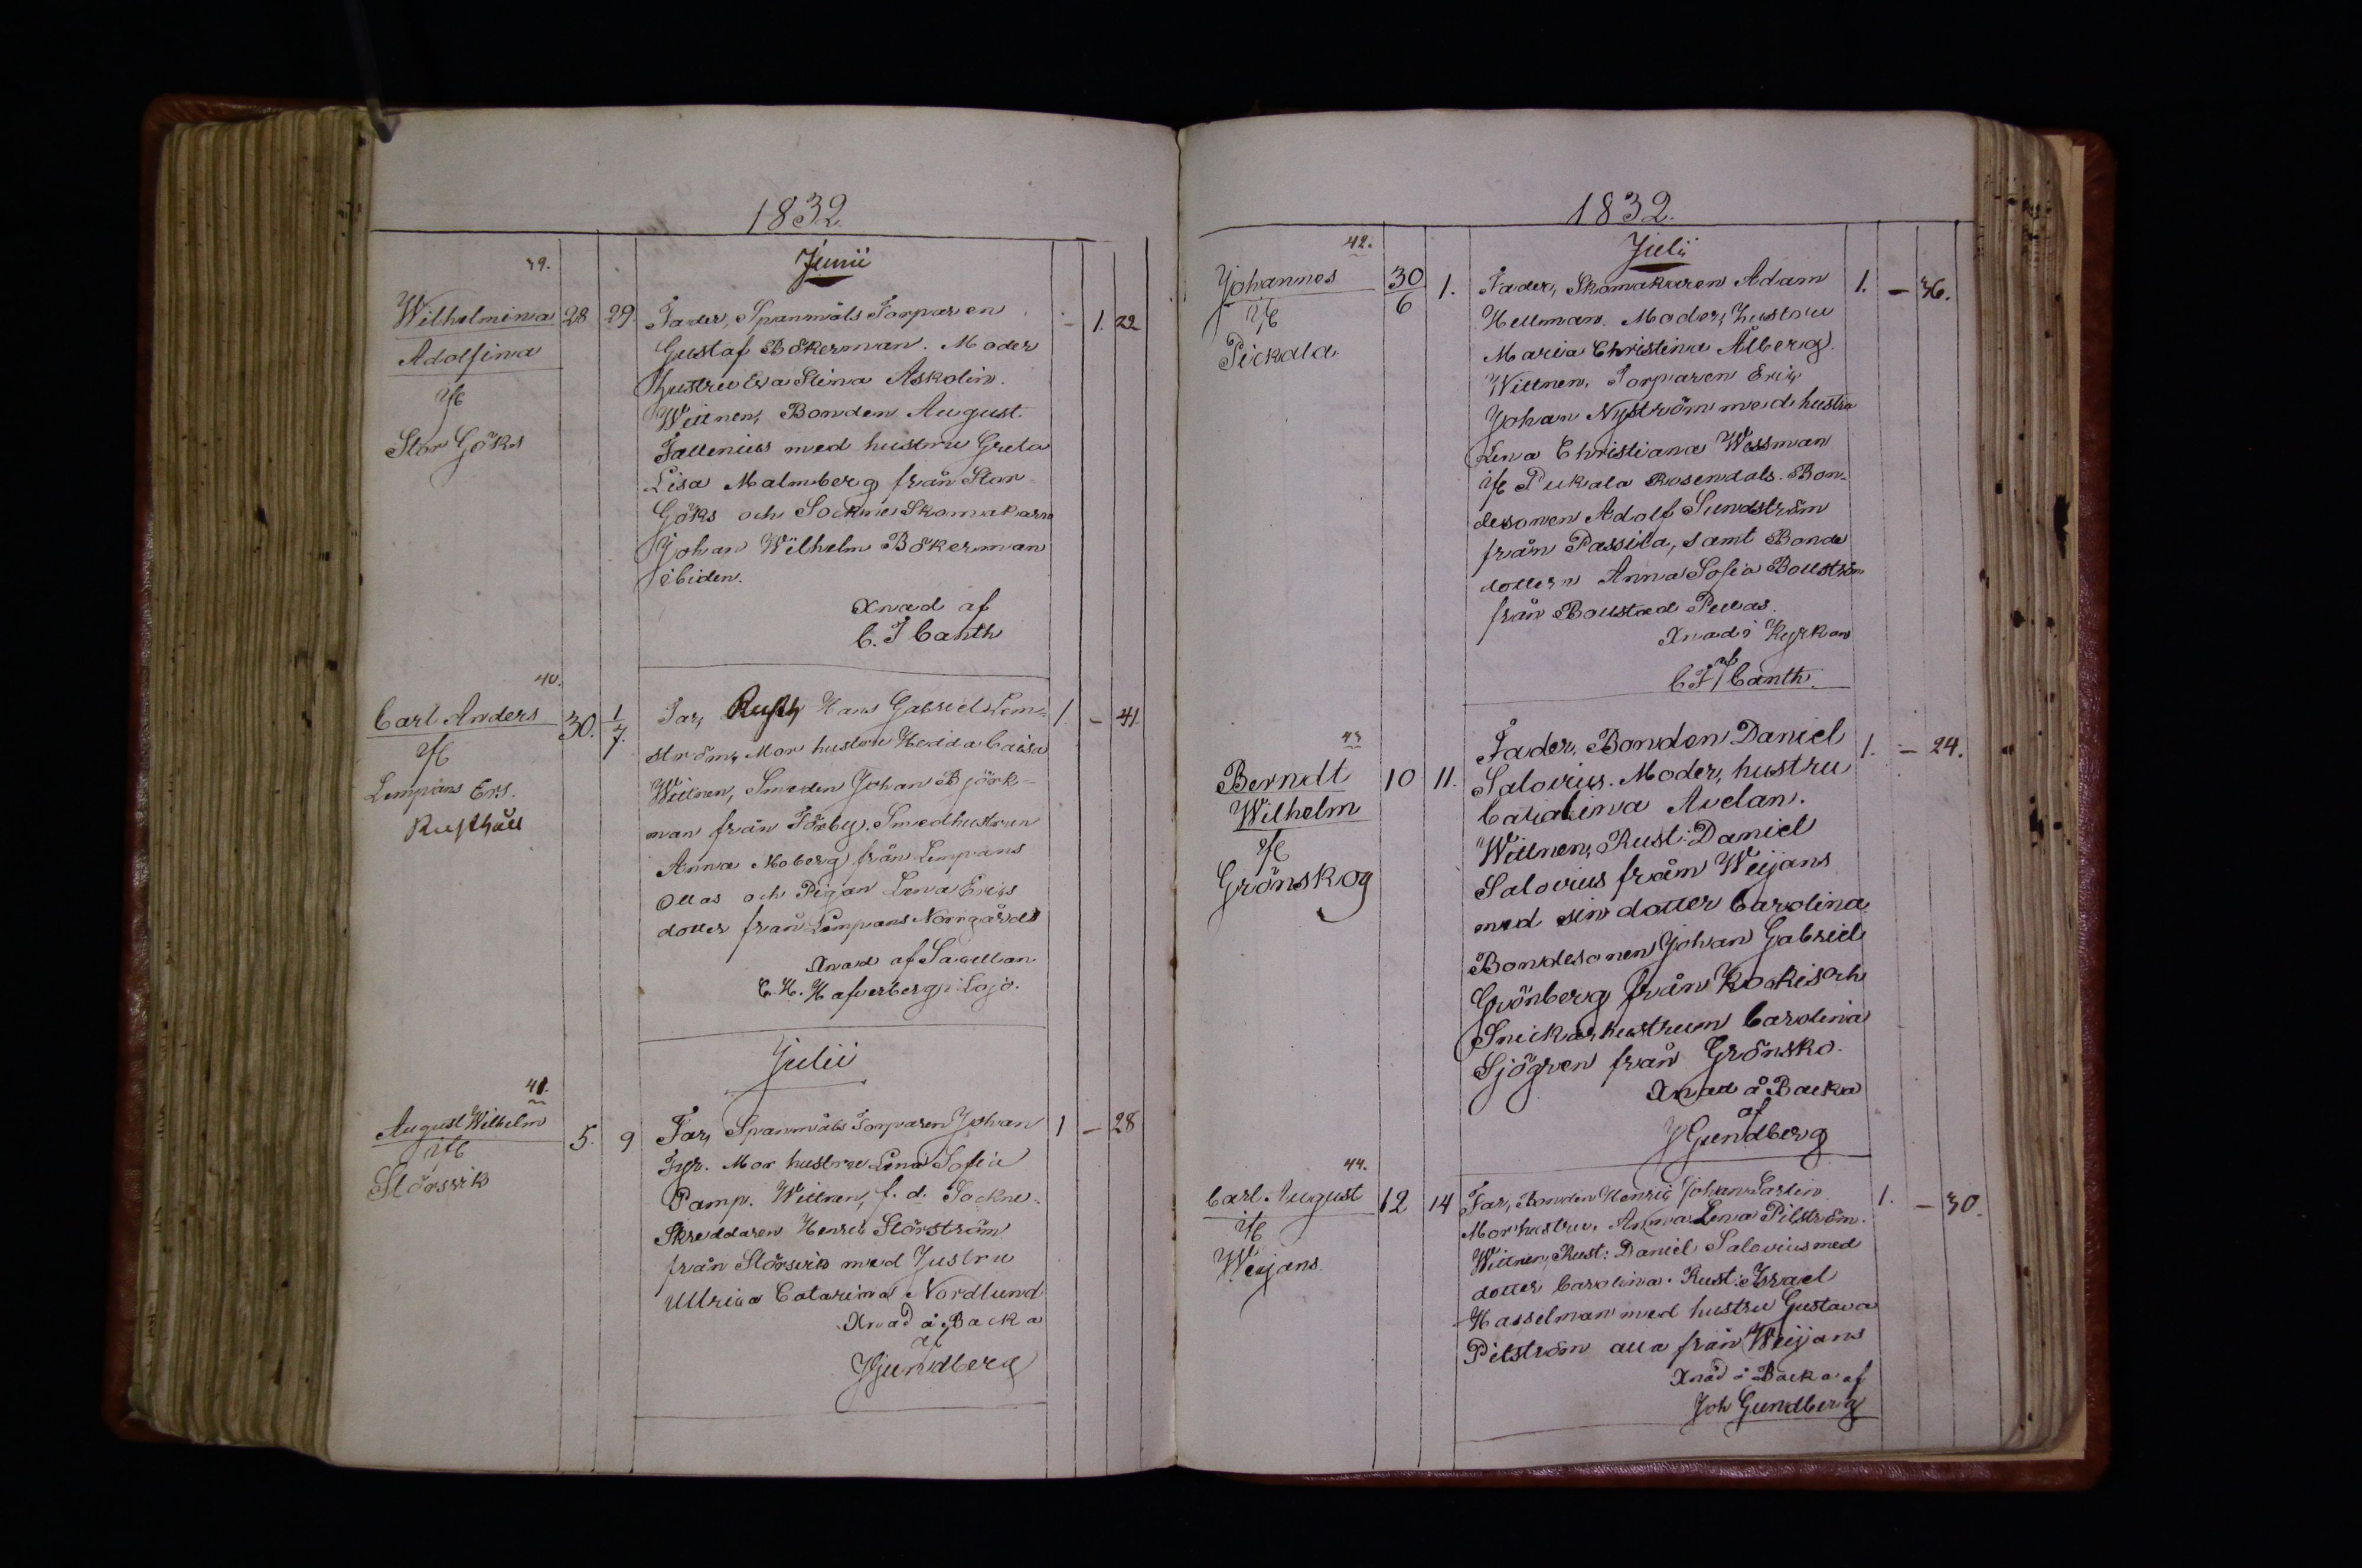 1832.
Junii
39.
Wilhelmina 28 29. Fader, Spanmåls Torparen – 1. 22
Adolfina Gustaf Bökerman. Moder
if hustru Eva Stina Askolin.
Stor Göks Wittnen, Bonden August
Fallenius med hustru Greta
Lisa Malmberg från Stor
Göks och Sockne Skomakaren
Johan Wilhelm Bökerman
ibiden.
Xnad af
C. F Canth
40.
Carl Anders 30. 1/7. Far, Rusth Hans Gabriel Lem- 1. – 41.
if ström, Mor hustru Hedda Caisa
Lempans Ers. Wittnen, Smeden Johan Björk-
Rusthåll man från Förby. Smedhustrun
Anna Moberg från Lempans
Ollas och Pigan Lena Erics
dotter från Lempans Norrgårds
Xnad af
C. H. Hafverberg i Lojo.
Julii
41.
August Wilhelm 5. 9 Far, Spanmåls Torparen Johan 1 – 28
if Fyr. Mor hustru Lena Sofia
Störsvik Pamp. Wittnen, f. d. Sockne
Skreddaren Henric Störström
från Störsvik med hustru
Ullrica Catarina Nordlund
Xnad å Backa
af
J Gundberg
1832.
Julii
42.
Johannes 30/6 1. Fader, Skomakaren Adam 1. – 36.
if Hellman. Moder, hustru
Pickala. Maria Christina Ålberg.
Wittnen, Torparen Eric
Johan Nyström med hustru
Lena Christiana Wessman
if Pickala Rosendals. Bon-
desonen Adolf Sundström
från Passila, samt Bonde
dottern Anna Sofia Bollström
från Bollstad Pellas.
Xnad i Kyrkan
af
C F Canth.
43
Berndt 10 11. Fader, Bonden Daniel 1. – 24.
Wilhelm Salovius. Moder, hustru
if Catarina Avelan.
Grönskog Wittnen, Rust: Daniel
Salovius från Weijans
med sin dotter Carolina
Bondesonen Johan Gabriel
Grönberg från Kockis och
Snickarhustrun Carolina
Sjögren från Grönsko.
Xnad å Backa
af
J Gundberg
44.
Carl August 12 14 Far, Bonden Henric Johan 1. – 30.
if Mor hustru, Anna Lena Pilström.
Weijans. Wittnen, Rust: Daniel Salovius med
dotter Carolina. Rust: Israel
Hasselman med hustru Gustava
Pilström alla från Weijans
Xnad å Backa af
Joh Gundberg